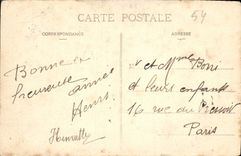 CARTE POSTALE
54
CORRESPONDANCE
ADRESSE
Bonne &
heureuse année
Henri
Henriette
Mr et Mme Boni
et leurs enfants
16 rue du
Paris